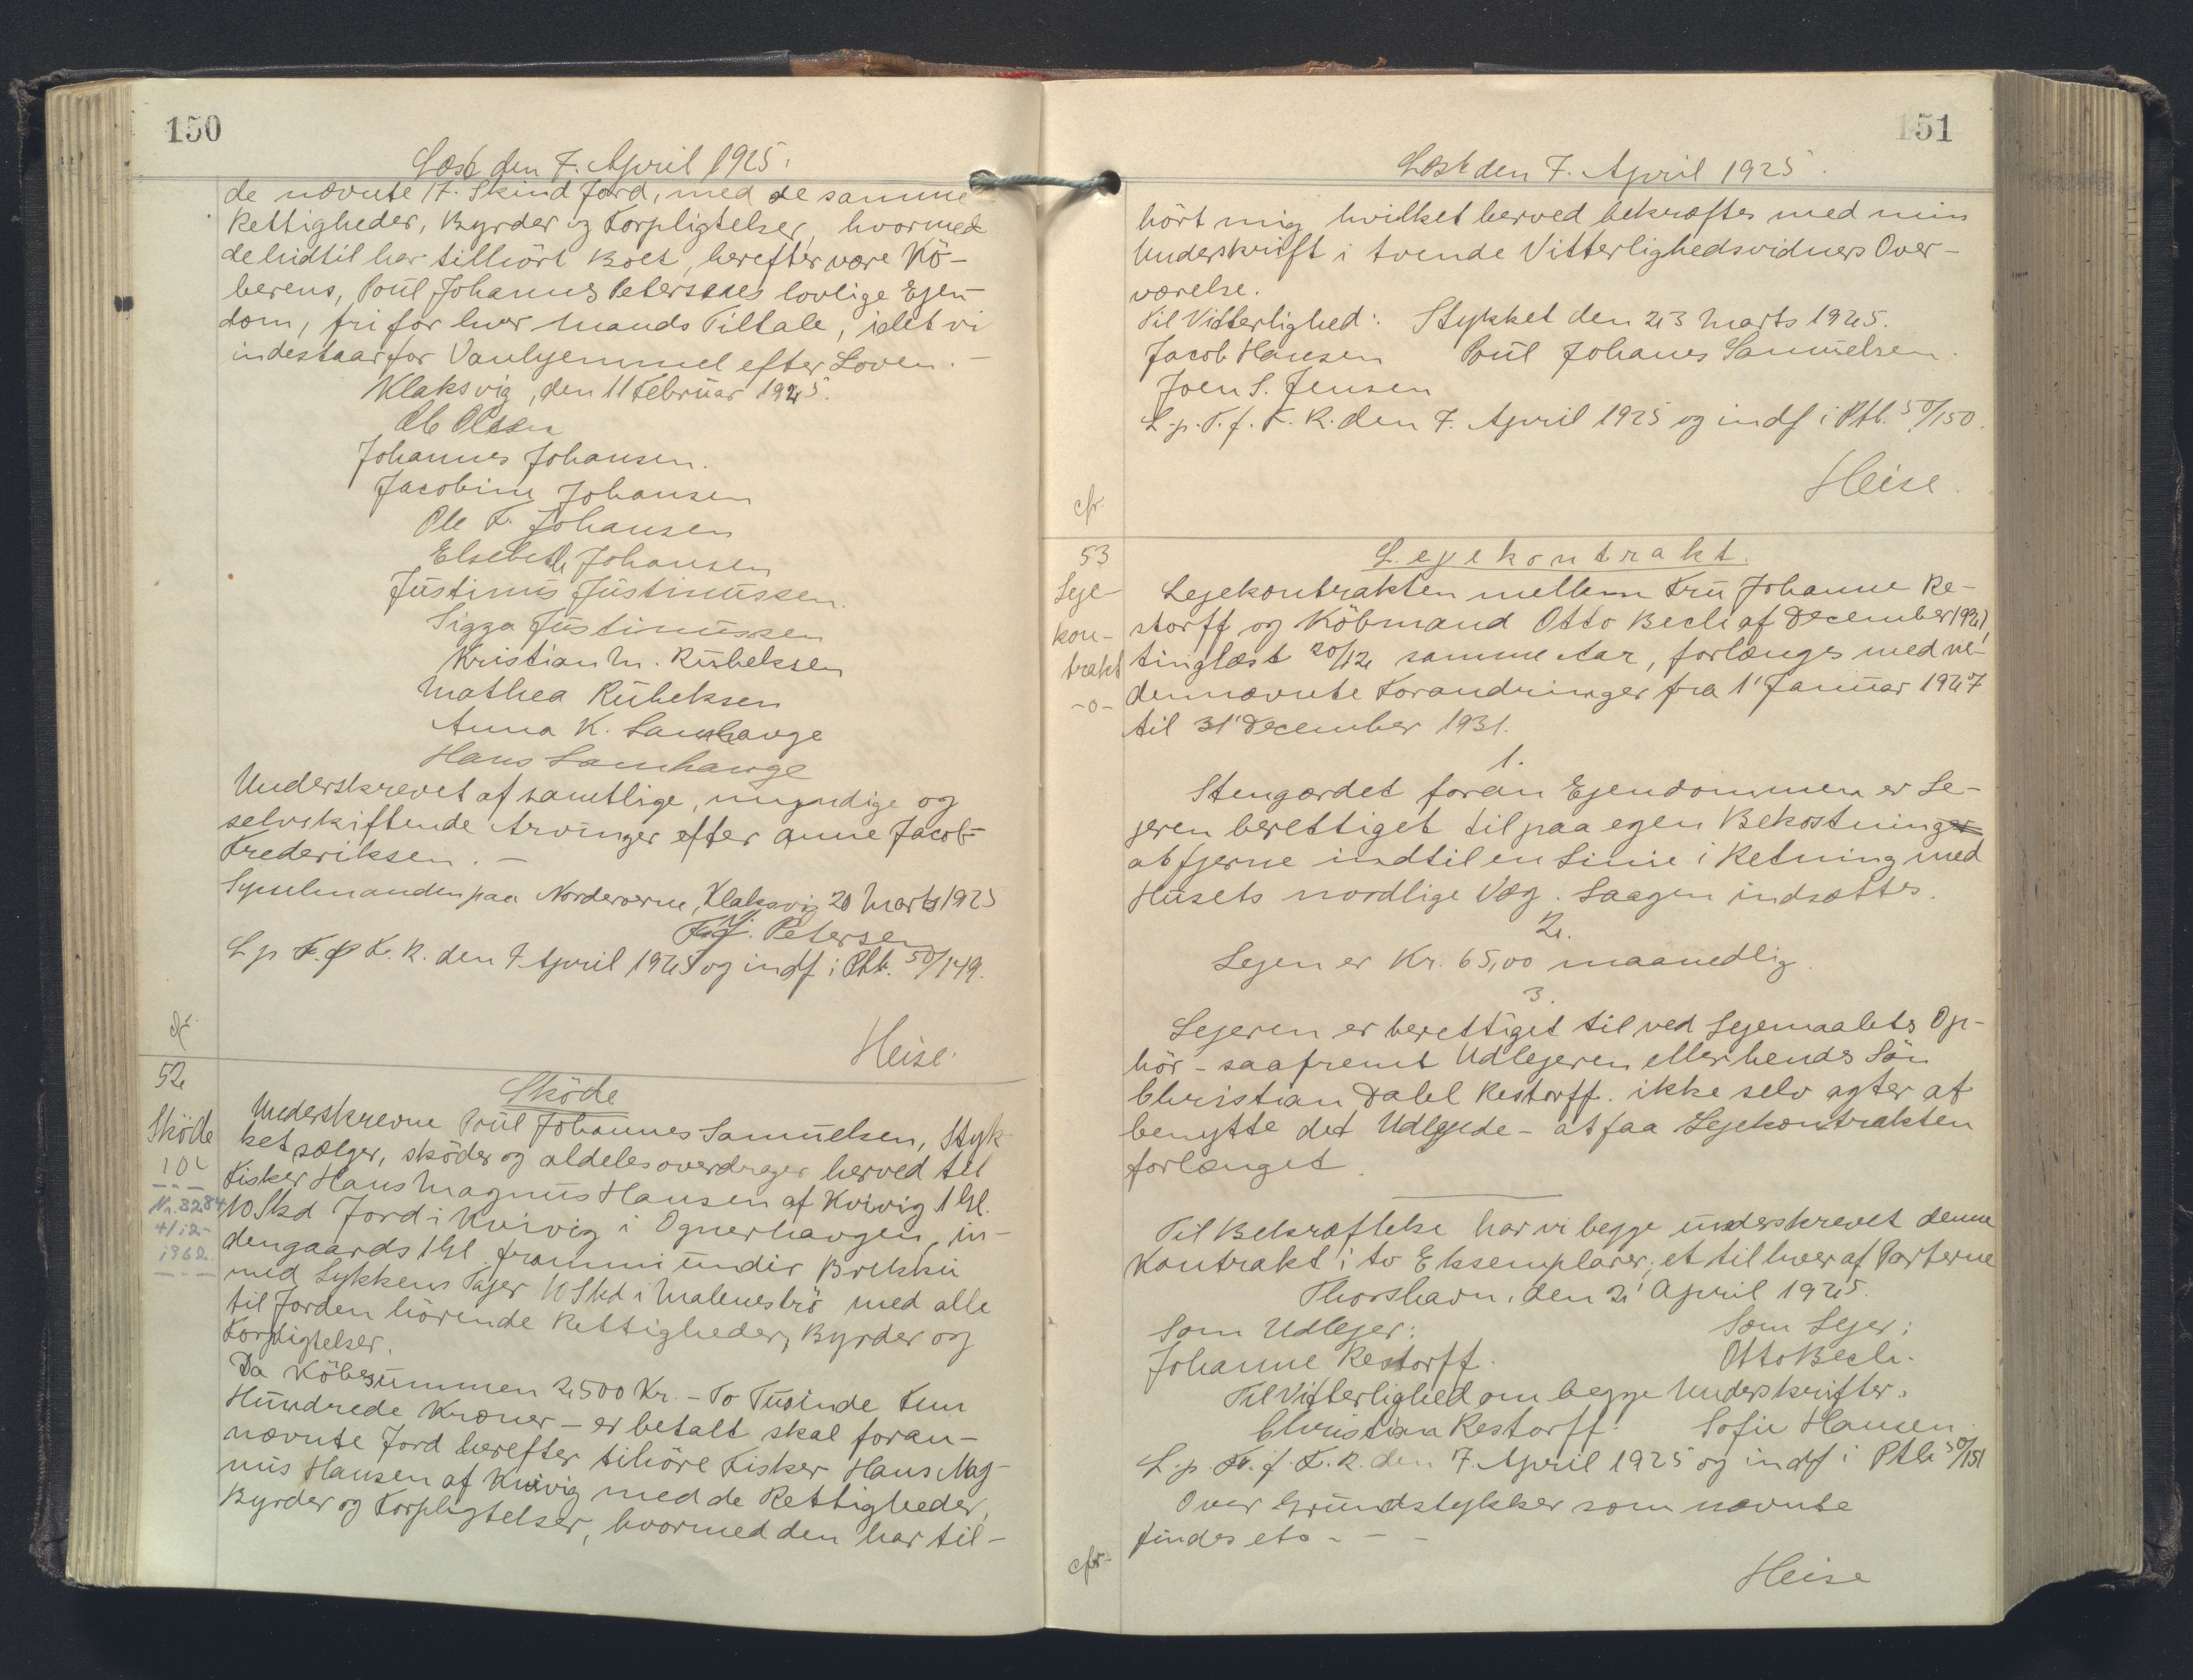 150
Læst den 7. April 1925.
de nævnte 17. Skind Jord, med de samme
Rettigheder, Byrder og Forpligtelser, hvormed
de hidtil har tilhört Boet, herefter være Kö-
berens, Poul Johannes Petersens lovlige Ejen-
dom, fri for hver Mands Tiltale, idet vi
indestaar for Vanhjemmel efter Loven. -
Klaksvig, den 11 Februar 1925.
Ole Olsen
Johannes Johansen.
Jacobine Johansen
Ole F. Johansen
Elsebeth Johansen
Justinus Justinussen.
Sigga Justinussen
Kristian M. Rubeksen
Mathea Rubeksen
Anna K. Samhauge
Hans Samhauge
Underskrevet af samtlige, myndige og
selvskiftende Arvinger efter Anne Jacob-
Frederiksen. -
Sysselmanden paa Norderøerne, Klaksvig 20 Marts 1925
Petersen
L. p. F. f. F. R. den 7 April 1925 og indf i Ptb. 50/149.
Heise.
cfr.
52
Sköde
Sköde
10
Nr. 3284
4/12-
1962
Underskrevne Poul Johannes Samuelsen, Styk-
ket sælger, sköder og aldeles overdrager herved til
Fisker Hans Magnus Hansen af Kvivig 1 Gl.
10 Skd Jord i Kvivig i Ognerhaugen, in-
dengaards 1 Gl frammi undir Brekku
med Lykkens Tajer 10 Skd i Maleneströ med alle
til Jorden hörende Rettigheder, Byrder og
Forpligtelser.
Da Köbesummen 2500 Kr. - To Tusinde Fem
Hundrede Kroner - er betalt skal foran-
nævnte Jord herefter tilhöre Fisker Hans Mag-
nus Hansen af Kvivig med de Rettigheder,
Byrder og Forpligtelser, hvormed den har til-
151
Læst den 7. April 1925.
hört mig hvilket herved bekræftes med min
Underskrift i tvende Vitterlighedsvidners Over-
værelse.
Til Vitterlighed: Stykket den 23 Marts 1925.
Jacob Hansen Poul Johanes Samuelsen.
Joen S. Jensen
L. p. F. f. F. R. den 7. April 1925 og indf i Ptb. 50/150.
Heise.
cfr.
53
Leje-
kon-
trakt
-o-
Lejekontrakt.
Lejekontrakten mellem Fru Johanne Re-
storff og Köbmand Otto Bech af December 1921,
tinglæst 20/12 samme Aar, forlænges med ne-
dennævnte Forandringer fra 1' Januar 1927
til 31' December 1931.
1.
Stengærdet foran Ejendommen er Le-
jeren berettiget til paa egen Bekostninger
at fjerne indtil en Linie i Retning med
Husets nordlige Væg. Laagen indsættes.
2.
Lejen er Kr. 65,00 maanedlig.
3.
Lejeren er berettiget til ved Lejemaalets Op-
hör - saafremt Udlejeren eller hendes Sön
Christian Dahl Restorff. ikke selv agter at
benytte det Udlejede - at faa Lejekontrakten
forlænget.
Til Bekræftelse har vi begge underskrevet denne
Kontrakt i to Eksemplarer, et til hver af Parterne
Thorshavn, den 2' April 1925.
Som Udlejer: Som Lejer:
Johanne Restorff. Otto Bech.
Til Vitterlighed om begge Underskrifter.
Christian Restorff. Sofie Hansen.
L. p. F. f. F. R. den 7. April 1925 og indf i Ptb 50/151
Over Grundstykker som nævnte
findes etc - - -
cfr.
Heise